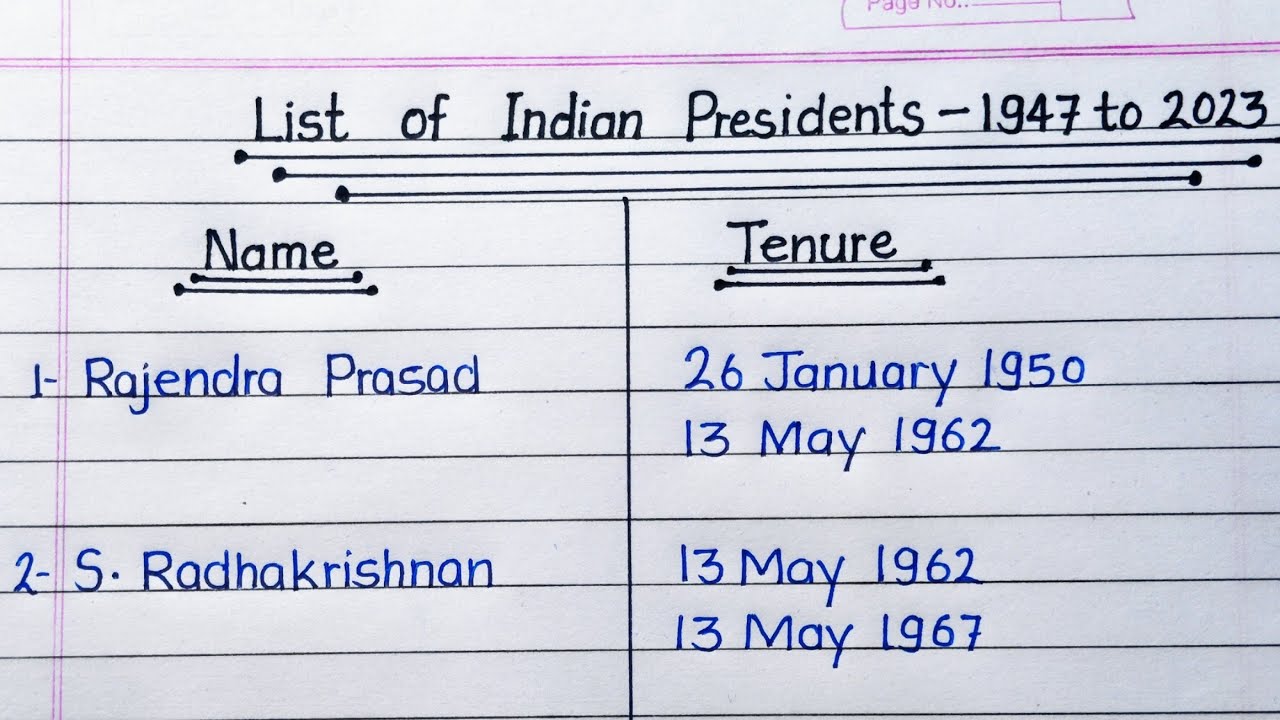 Page No.:
List of Indian Presidents - 1947 to 2023
Name Tenure
1- Rajendra Prasad 26 January 1950
13 May 1962
2- S. Radhakrishnan 13 May 1962
13 May 1967